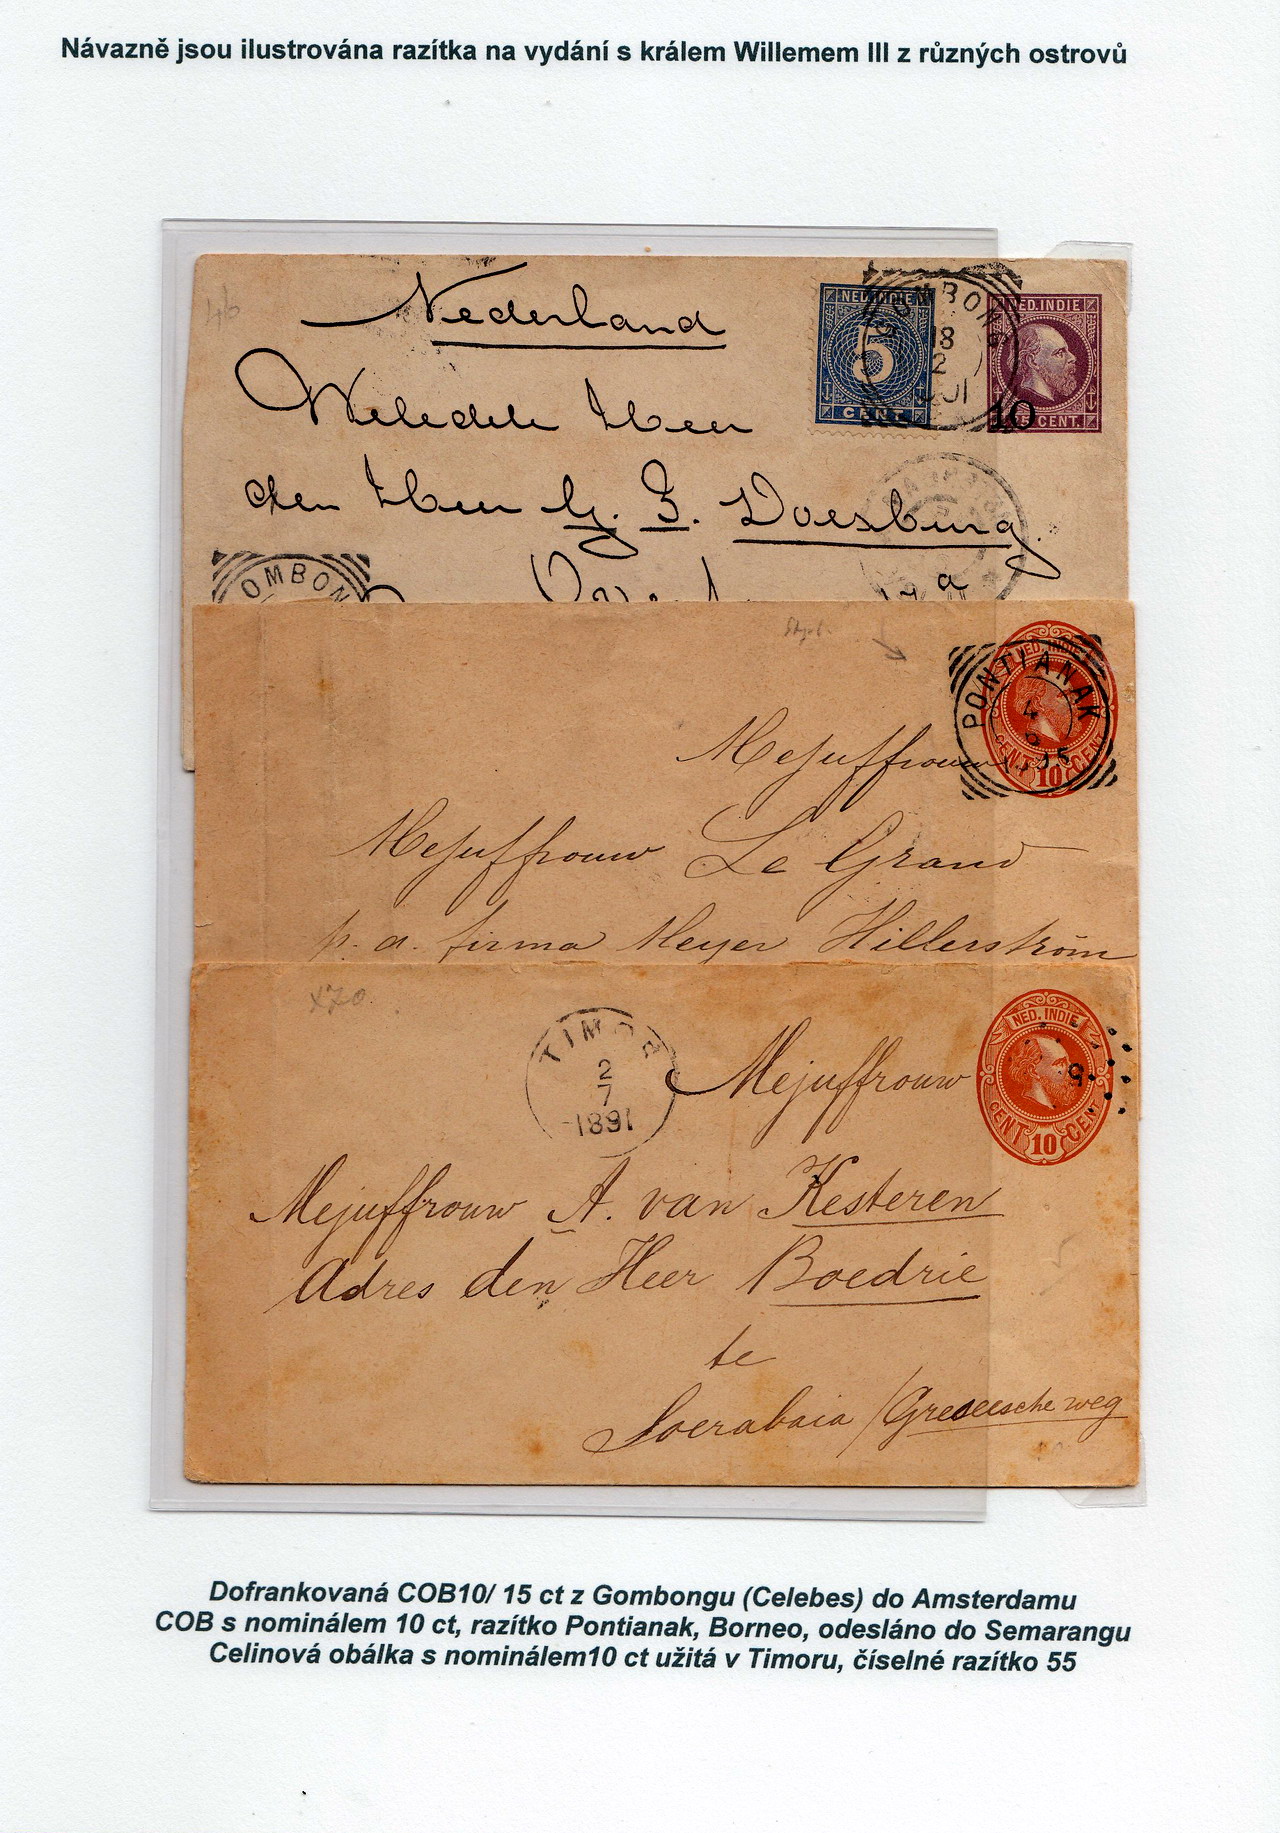 Návazně jsou ilustrována razítka na vydání s králem Willemem III z různých ostrovů
46
Nederland
NED. INDIE
5
CENT
OMBONG
18
2
NED. INDIE
10
CENT.
Weledele Heer
den Heer G. J. Doesburg
a
OMBON
NED. INDIE
CENT 10 CENT
PONTIANAK
4
Mejuffrouw
Mejuffrouw Le Grand
p. a. firma Meyer Hillerström
x70
TIMOR
2
7
1891
NED. INDIE
5
CENT 10 CENT
Mejuffrouw
Mejuffrouw A. van Kesteren
Adres den Heer Boedrie
te
Soerabaia /Greseesche weg
Dofrankovaná COB10/ 15 ct z Gombongu (Celebes) do Amsterdamu
COB s nominálem 10 ct, razítko Pontianak, Borneo, odesláno do Semarangu
Celinová obálka s nominálem10 ct užitá v Timoru, číselné razítko 55